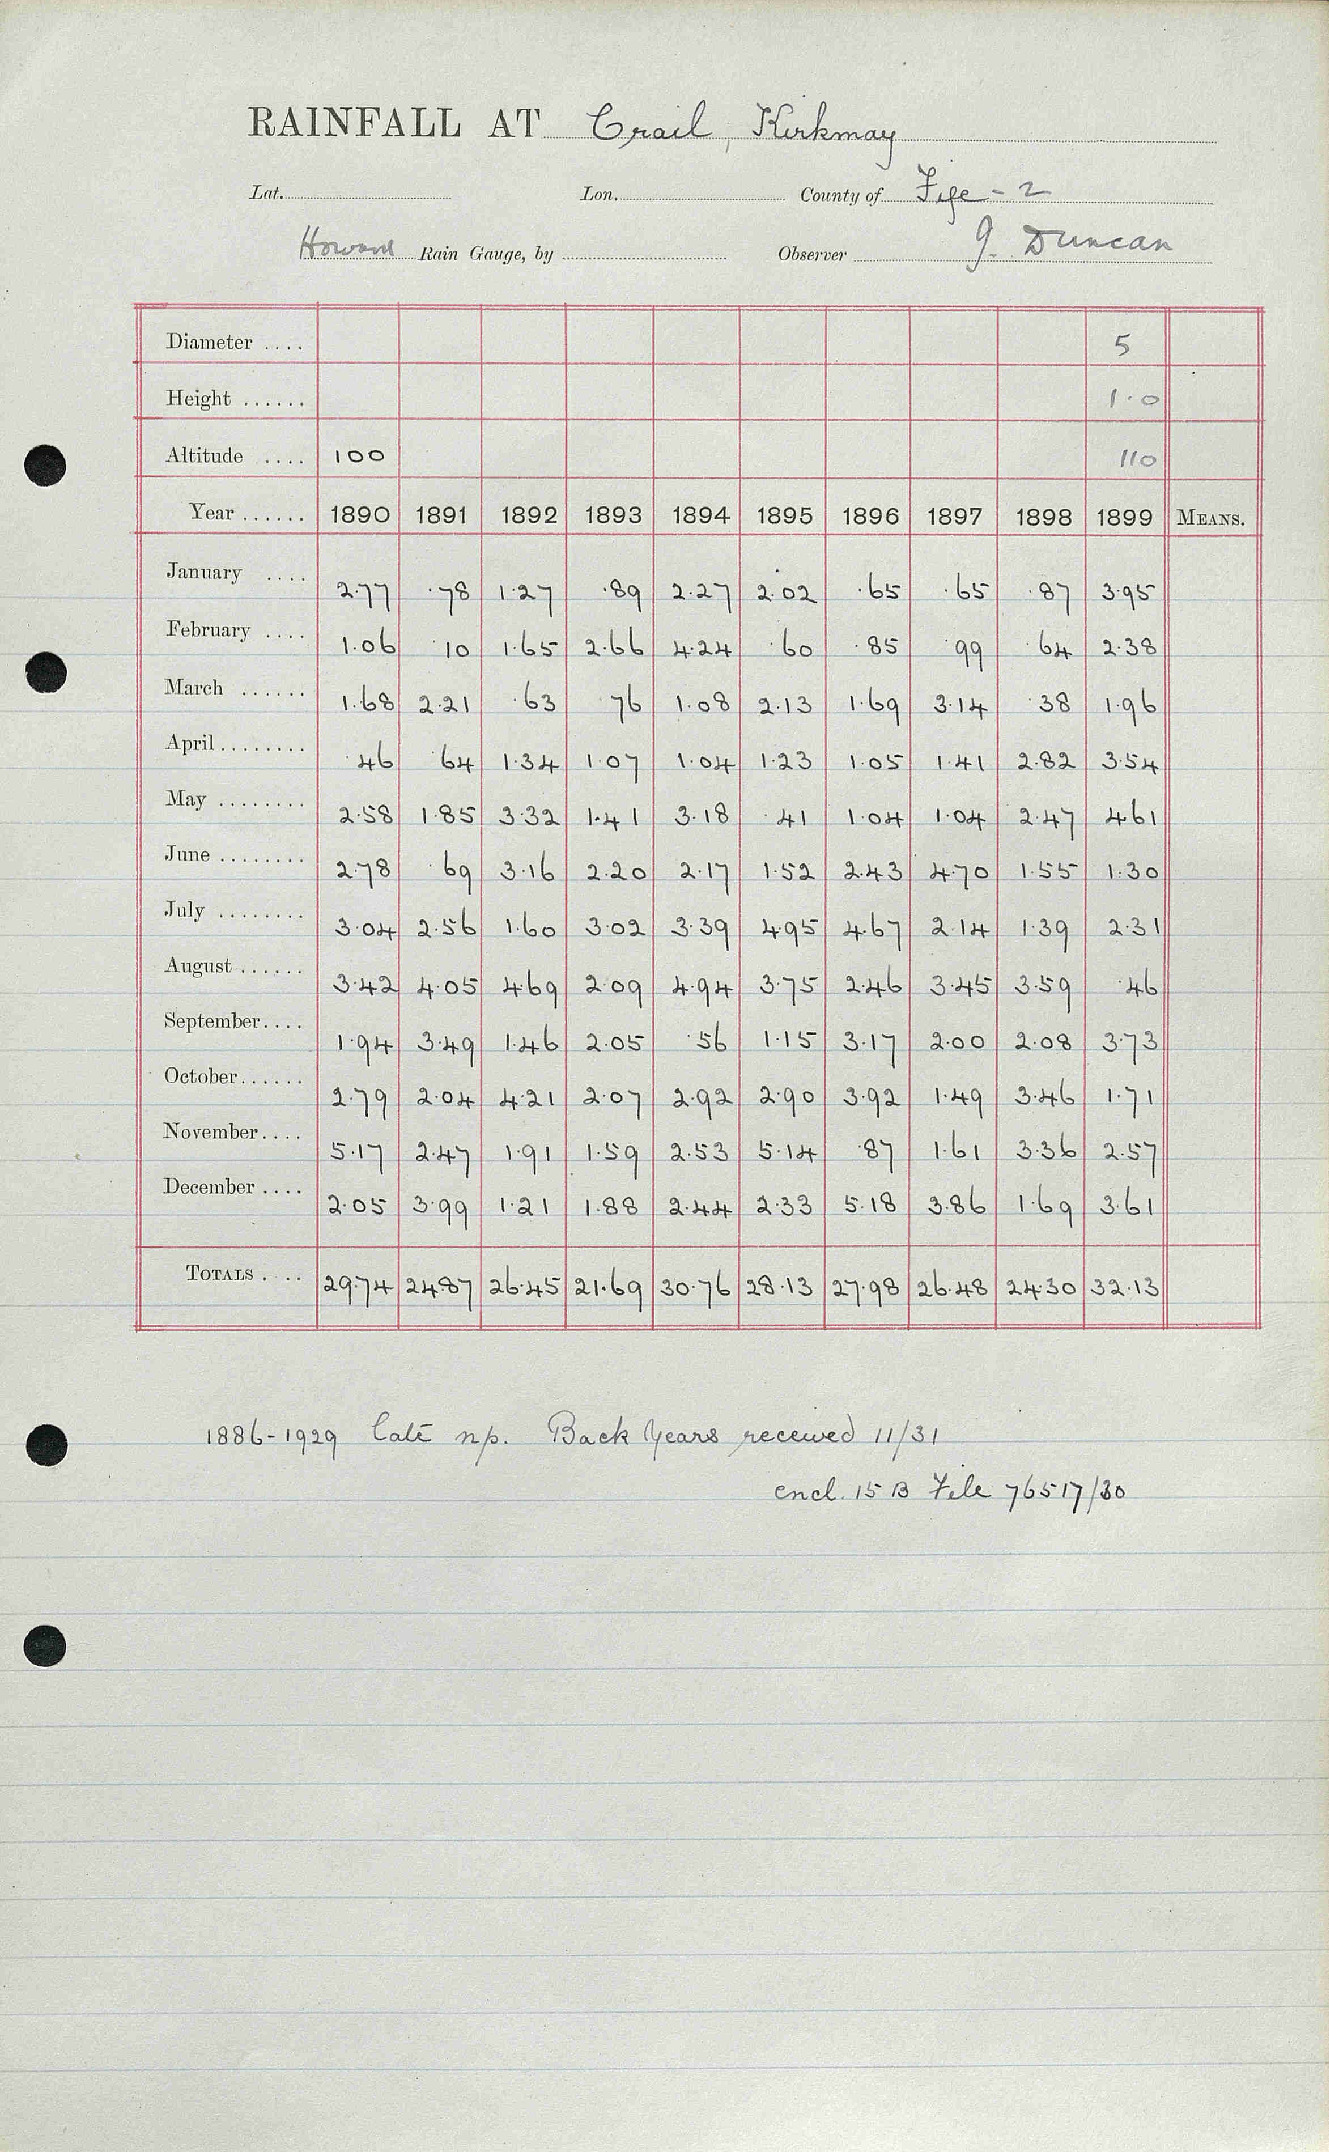 RAINFALL AT Crail, Kirkmay
Lat. Lon. County of Fife - 2
Howard Rain Gauge, by Observer J. Duncan
Diameter .... 5
Height ...... 1.0
Altitude .... 100 110
Year ...... 1890 1891 1892 1893 1894 1895 1896 1897 1898 1899 MEANS.
January .... 2.77 .78 1.27 .89 2.27 2.02 .65 .65 .87 3.95
February .... 1.06 .10 1.65 2.66 4.24 .60 .85 .99 .64 2.38
March ...... 1.68 2.21 .63 .76 1.08 2.13 1.69 3.14 .38 1.96
April ........ .46 .64 1.34 1.07 1.04 1.23 1.05 1.41 2.82 3.54
May ........ 2.58 1.85 3.32 1.41 3.18 .41 1.04 1.04 2.47 4.61
June ........ 2.78 .69 3.16 2.20 2.17 1.52 2.43 4.70 1.55 1.30
July ........ 3.04 2.56 1.60 3.02 3.39 4.95 4.67 2.14 1.39 2.31
August ...... 3.42 4.05 4.69 2.09 4.94 3.75 2.46 3.45 3.59 .46
September.... 1.94 3.49 1.46 2.05 .56 1.15 3.17 2.00 2.08 3.73
October...... 2.79 2.04 4.21 2.07 2.92 2.90 3.92 1.49 3.46 1.71
November.... 5.17 2.47 1.91 1.59 2.53 5.14 .87 1.61 3.36 2.57
December .... 2.05 3.99 1.21 1.88 2.44 2.33 5.18 3.86 1.69 3.61
TOTALS .... 29.74 24.87 26.45 21.69 30.76 28.13 27.98 26.48 24.30 32.13
1886-1929 late np. Back Years received 11/31
encl. 15 B File 76517/30